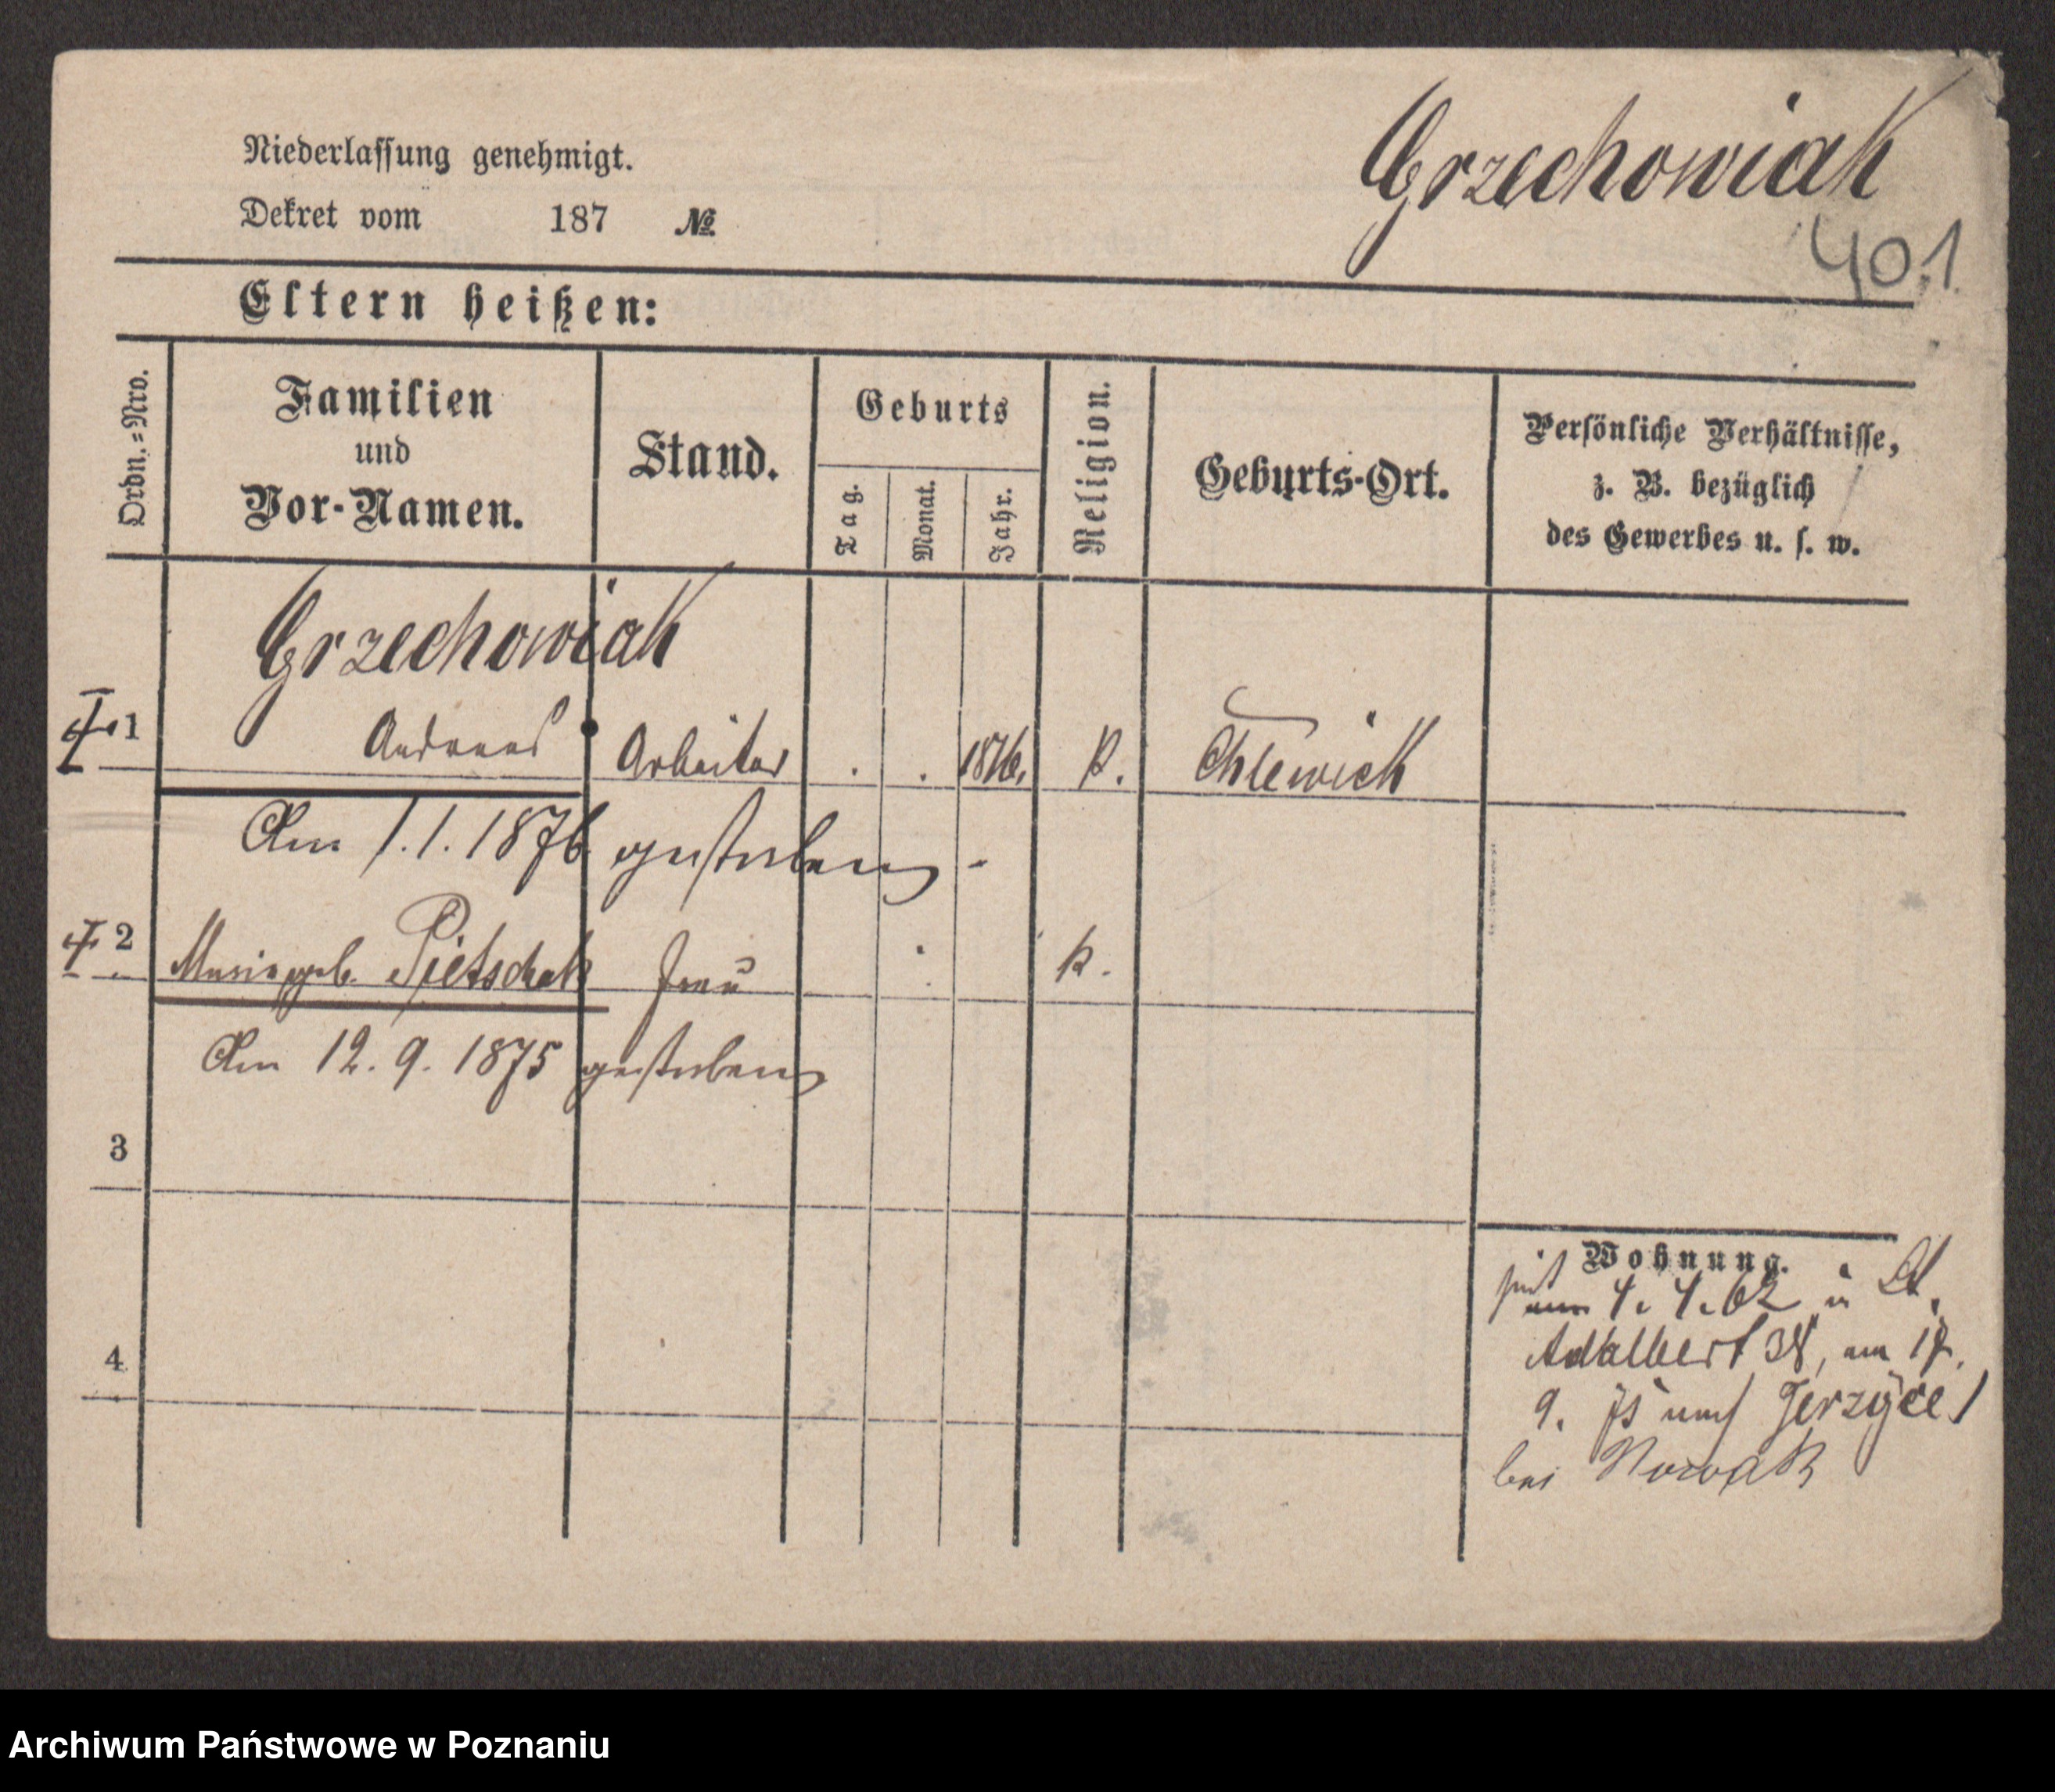 Niederlassung genehmigt.
Grzechowiak
Dekret vom 187 №
401
Eltern heißen:
Ordn.=Nro.
Familien
und
Vor-Namen.
Stand.
Geburts
Tag.
Monat.
Jahr.
Religion.
Geburts-Ort.
Persönliche Verhältnisse,
z. B. bezüglich
des Gewerbes u. s. w.
Grzechowiak
1 Andreas Arbeiter . . K. Chlewisk
Am 1.1.1876 gestorben
2 Marie geb. Pietschak Frau K.
Am 12. 9. 1875 gestorben
3
4
Wohnung.
seit 4. 4. 62 in St.
Adalbert 38, am 17.
9. 75 nach Jerzyce
bei Nowak
Archiwum Państwowe w Poznaniu